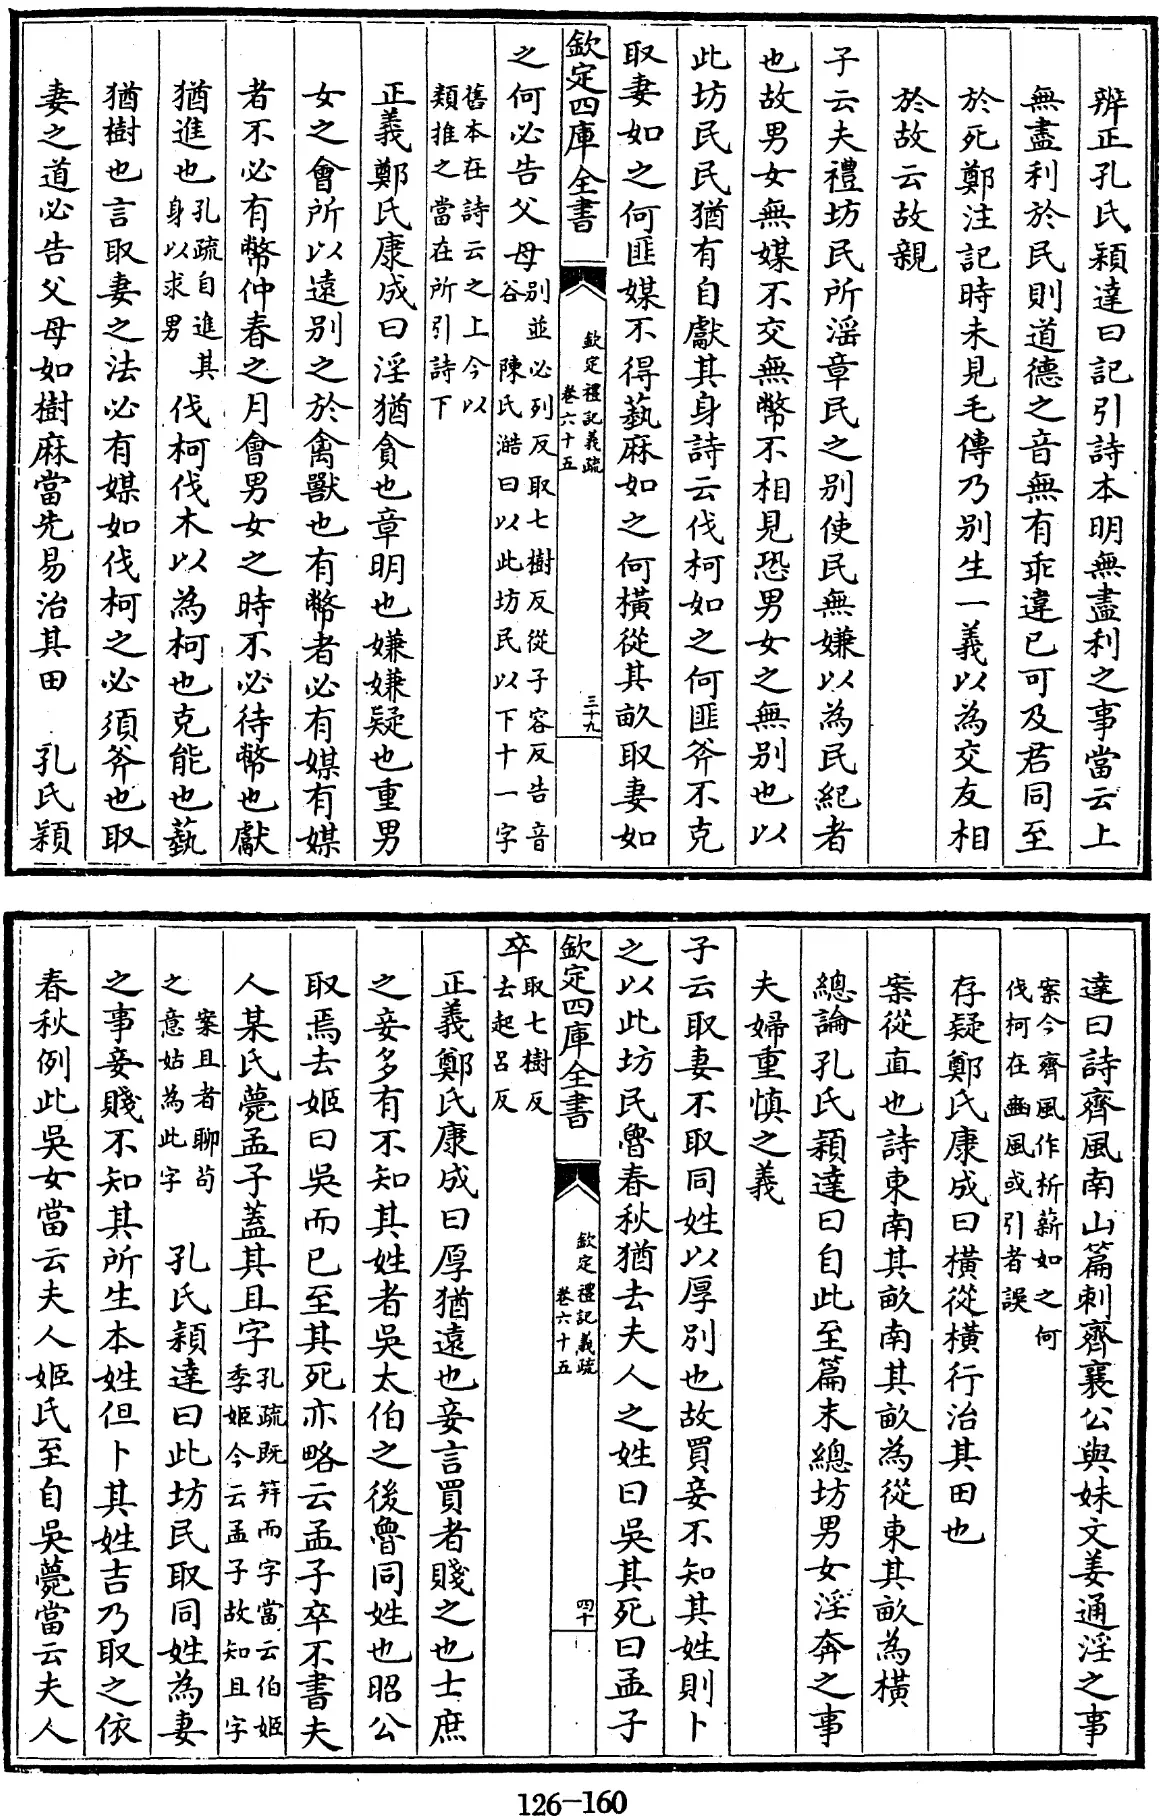 辨正孔氏穎達曰記引詩本明無盡利之事當云上
無盡利於民則道德之音無有乖違已可及君同至
於死鄭注記時未見毛傳乃別生一義以為交友相
於故云故親
子云夫禮坊民所淫章民之别使民無嫌以為民紀者
也故男女無媒不交無幣不相見恐男女之無别也以
此坊民民猶有自獻其身詩云伐柯如之何匪斧不克
取妻如之何匪媒不得蓺麻如之何橫從其畝取妻如
欽定四庫全書
欽定禮記義疏
卷六十五
三十九
之何必告父母别並必列反取七樹反從子容反告音
谷 陳氏澔曰以此坊民以下十一字
舊本在詩云之上今以
類推之當在所引詩下
正義鄭氏康成曰淫猶貪也章明也嫌嫌疑也重男
女之會所以遠别之於禽獸也有幣者必有媒有媒
者不必有幣仲春之月會男女之時不必待幣也獻
猶進也孔疏自進其身以求男 伐柯伐木以為柯也克能也蓺
猶樹也言取妻之法必有媒如伐柯之必須斧也取
妻之道必告父母如樹麻當先易治其田 孔氏穎
達曰詩齊風南山篇刺齊襄公與妹文姜通淫之事
案今齊風作析薪如之何
伐柯在豳風或引者誤
存疑鄭氏康成曰橫從橫行治其田也
案從直也詩東南其畝南其畝為從東其畝為橫
總論孔氏穎達曰自此至篇末總坊男女淫奔之事
夫婦重慎之義
子云取妻不取同姓以厚别也故買妾不知其姓則卜
之以此坊民魯春秋猶去夫人之姓曰吳其死曰孟子
欽定四庫全書
欽定禮記義疏
卷六十五
四十
卒取七樹反
去起呂反
正義鄭氏康成曰厚猶遠也妾言買者賤之也士庶
之妾多有不知其姓者吳太伯之後魯同姓也昭公
取焉去姬曰吳而已至其死亦略云孟子卒不書夫
人某氏薨孟子蓋其且字孔疏既笄而字當云伯姬季姬今云孟子故知且字
案且者聊苟
之意姑為此字 孔氏穎達曰此坊民取同姓為妻
之事妾賤不知其所生本姓但卜其姓吉乃取之依
春秋例此吳女當云夫人姬氏至自吳薨當云夫人
126-160